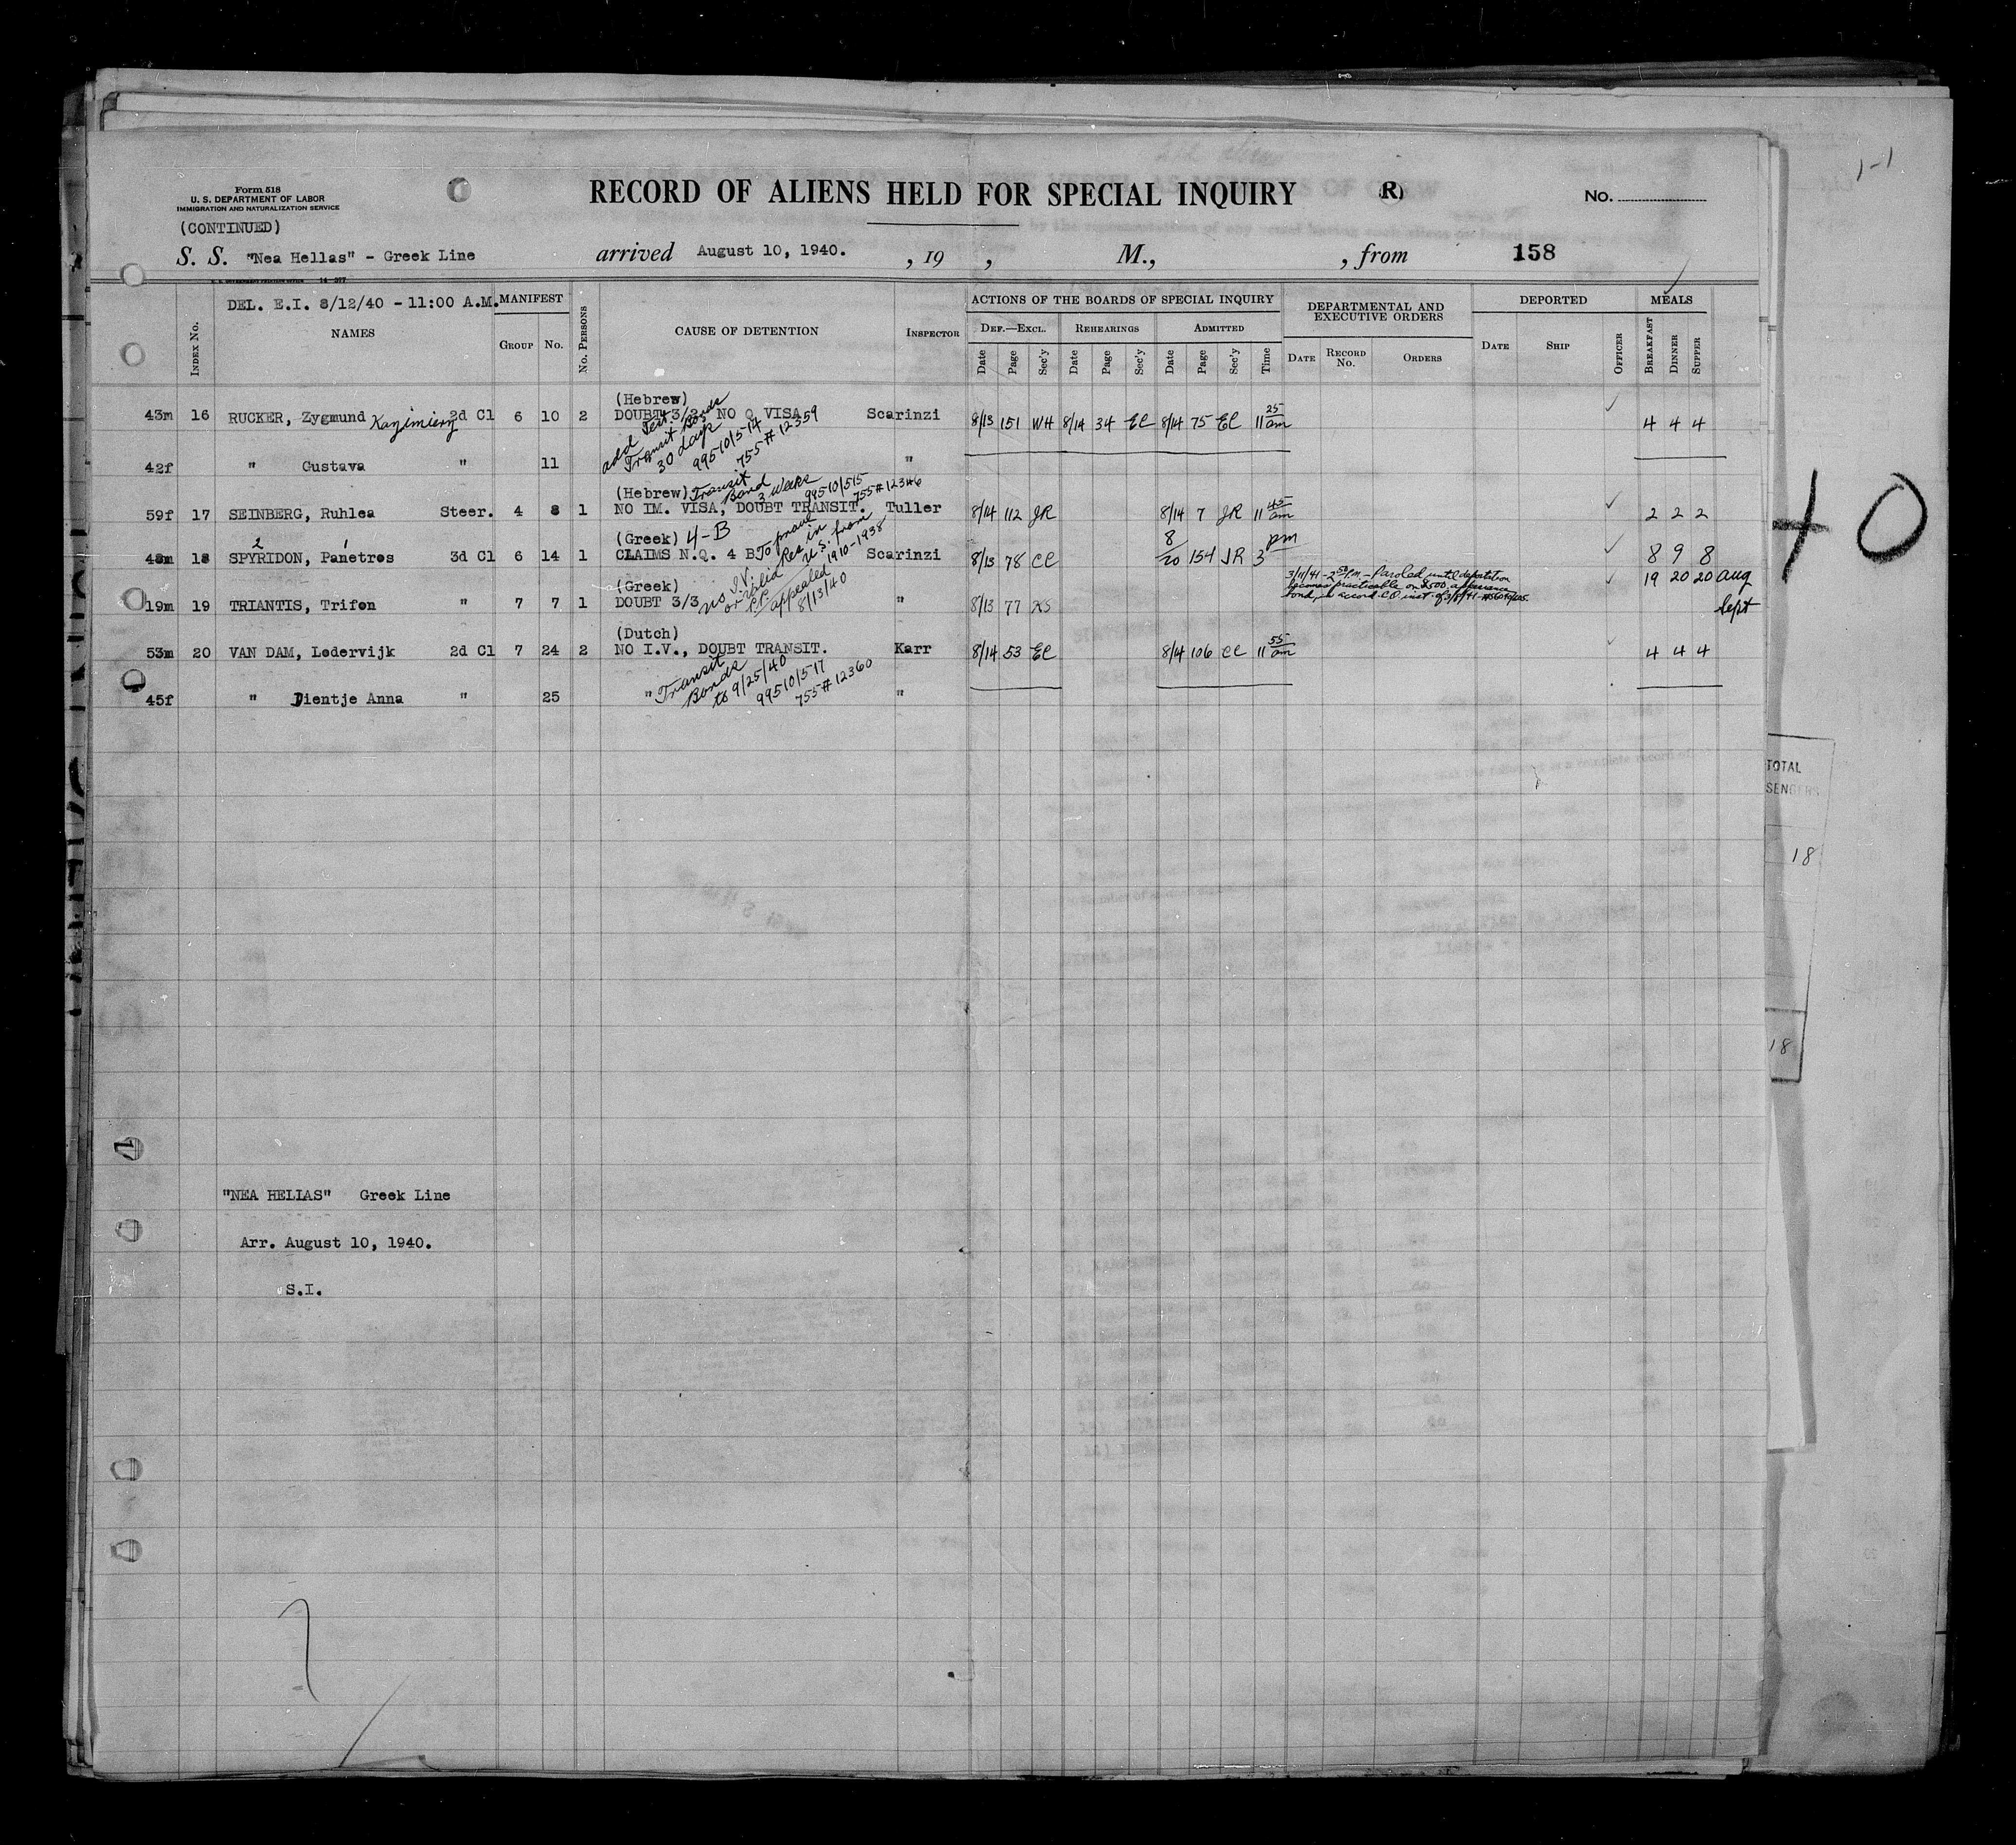 Form 518
U. S. DEPARTMENT OF LABOR
IMMIGRATION AND NATURALIZATION SERVICE
(CONTINUED)
RECORD OF ALIENS HELD FOR SPECIAL INQUIRY (R)
No.
1-1
S. S. "Nea Hellas" - Greek Line arrived August 10, 1940. , 19 , M., , from 158
DEL. E.I. 8/12/40 - 11:00 A.M.
INDEX No. NAMES MANIFEST GROUP No. No. PERSONS CAUSE OF DETENTION INSPECTOR
ACTIONS OF THE BOARDS OF SPECIAL INQUIRY
DEF.—EXCL. REHEARINGS ADMITTED
Date Page Sec'y Date Page Sec'y Date Page Sec'y Time
DEPARTMENTAL AND EXECUTIVE ORDERS
DATE RECORD No. ORDERS
DEPORTED
DATE SHIP OFFICER
MEALS
BREAKFAST DINNER SUPPER
(Hebrew)
43m 16 RUCKER, Zygmund Kazimierz 2d Cl 6 10 2 DOUBT 3/3 NO Q VISA Scarinzi 8/13 151 WH 8/14 34 EC 8/14 75 EC 11 25 am 4 4 4
add Test.
Transit Bonds
30 days
99510/514
755#12359
42f " Gustava " 11 "
(Hebrew) Transit
Bond 3 weeks
99510/515
755#12346
59f 17 SEINBERG, Ruhlea Steer. 4 8 1 NO IM. VISA, DOUBT TRANSIT. Tuller 8/14 112 JR 8/14 7 JR 11 45 am 2 2 2
(Greek) 4-B
2 1
48m 18 SPYRIDON, Panetros 3d Cl 6 14 1 CLAIMS N.Q. 4 B Scarinzi 8/13 78 CC 8/20 154 JR 3 pm 8 9 8
To prove
Res in
U.S. from
1910-1938
(Greek)
19m 19 TRIANTIS, Trifon " 7 7 1 DOUBT 3/3 " 8/13 77
no I.V.
or valid
P.P.
appealed
8/13/40
3/11/41 - 2 50 P.M. - Paroled until deportation
becomes practicable on $500. appearance
bond, in accord. C.O. inst. of
19 20 20 Aug
Sept
(Dutch)
53m 20 VAN DAM, Lodervijk 2d Cl 7 24 2 NO I.V., DOUBT TRANSIT. Karr 8/14 53 EC 8/14 106 CC 11 55 am 4 4 4
45f " Dientje Anna " 25 " "
Transit
Bonds
to 9/25/40
99510/517
755#12360
40
TOTAL
SENGERS
18
18
"NEA HELIAS" Greek Line
Arr. August 10, 1940.
S.I.